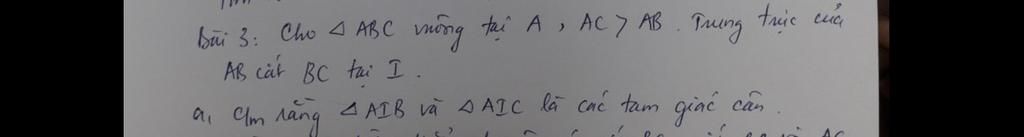 Bài 3: Cho △ ABC vuông tại A, AC > AB. Trung trực của
AB cắt BC tại I.
a, C/m rằng △ AIB và △ AIC là các tam giác cân.